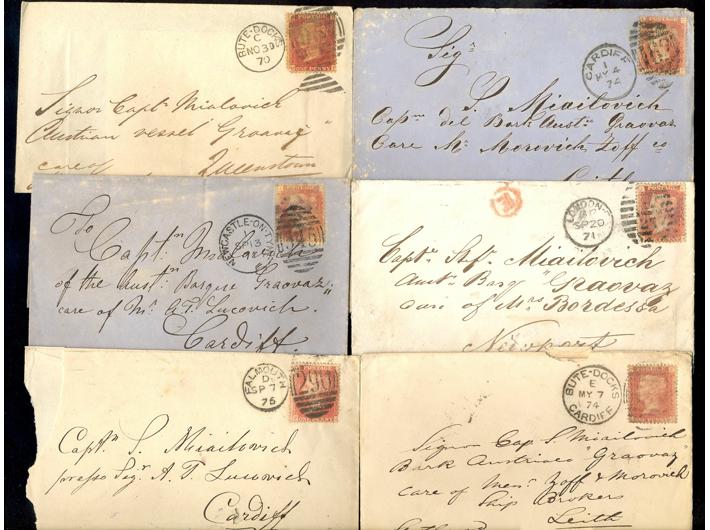 BUTE-DOCKS
C
NO 30
70
ONE PENNY
Signor Capt. Miailovich
Austrian vessel "Graovaz"
care of
Queenstown
CARDIFF
1
MY 4
74
Sigr
S. Miailovich
Capm del Bark Austn Graovaz
Care Mr Morovich Zoff & co
Leith
NEWCASTLE-ON-TYNE
SP 13
To
Captn Miailovich
of the Austn Barque Graovaz"
care of Mr A. T. Lucovich.
Cardiff.
LONDON
SP 20
71
Captn Stef. Miailovich
Austn Barq "Graovaz
care of Mrs Bordessa
Newport
FALMOUTH
D
SP 7
75
290
Captn S. Miailovich
presso Sigr A. T. Lucovich
Cardiff
BUTE-DOCKS
E
MY 7
74
CARDIFF
Signor Cap S Miailovich
Bark Austriaco "Graovaz"
care of Messrs Zoff & Morovich
Ship Brokers
Leith